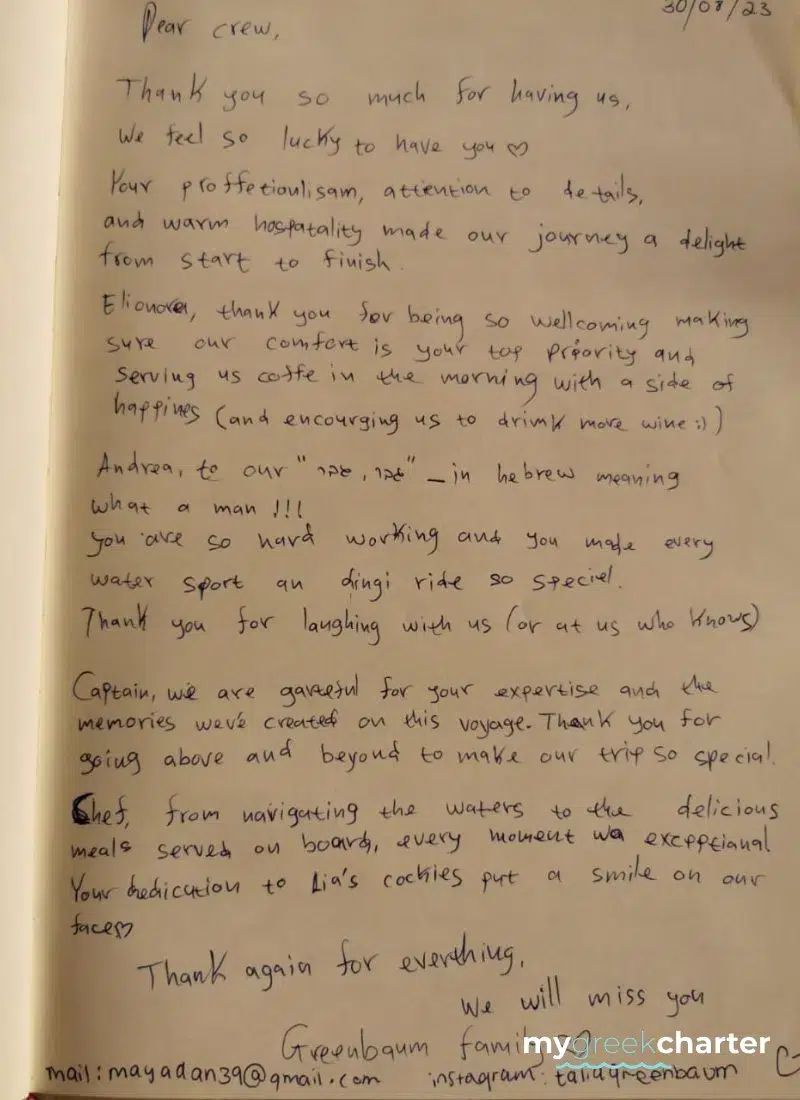 30/08/23
Dear crew,
Thank you so much for having us,
We feel so lucky to have you ♡
Your proffetioulisam, attention to details,
and warm hospatality made our journey a delight
from start to finish.
Elionora, thank you for being so wellcoming making
sure our comfort is your top priority and
serving us coffe in the morning with a side of
happines (and encourging us to drink more wine :))
Andrea, to our "גבר, גבר" - in hebrew meaning
what a man !!!
you are so hard working and you made every
water sport an dingi ride so speciel.
Thank you for laughing with us (or at us who knows)
Captain, we are garteful for your expertise and the
memories weve created on this voyage. Thank you for
going above and beyond to make our trip so special.
Chef, from navigating the waters to the delicious
meals served on board, every moment wa exceptianal
Your dedication to Lia's cockies put a smile on our
face♡
Thank again for everthing,
We will miss you
Greenbaum family ♡
mygreekcharter
mail: mayadan39@gmail.com instagram: taliagreenbaum